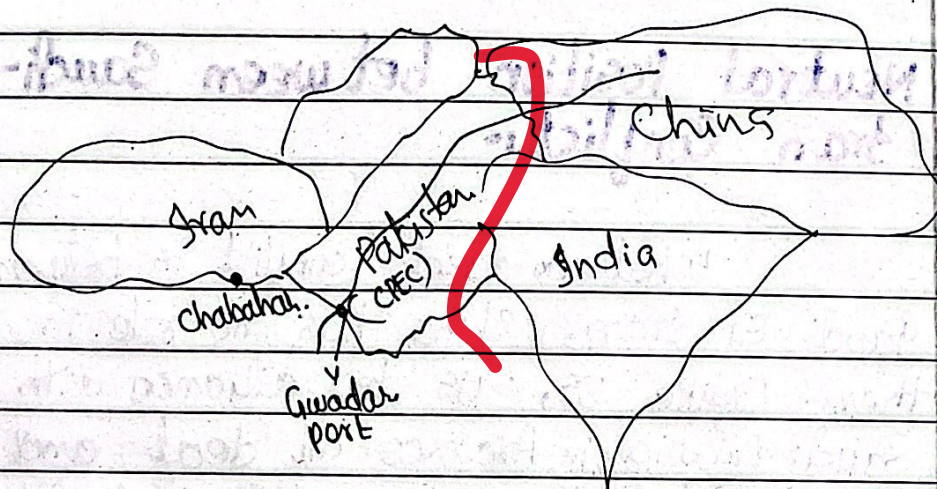 China
Iran
Pakistan
(CPEC)
India
Chabahar.
Gwadar
port